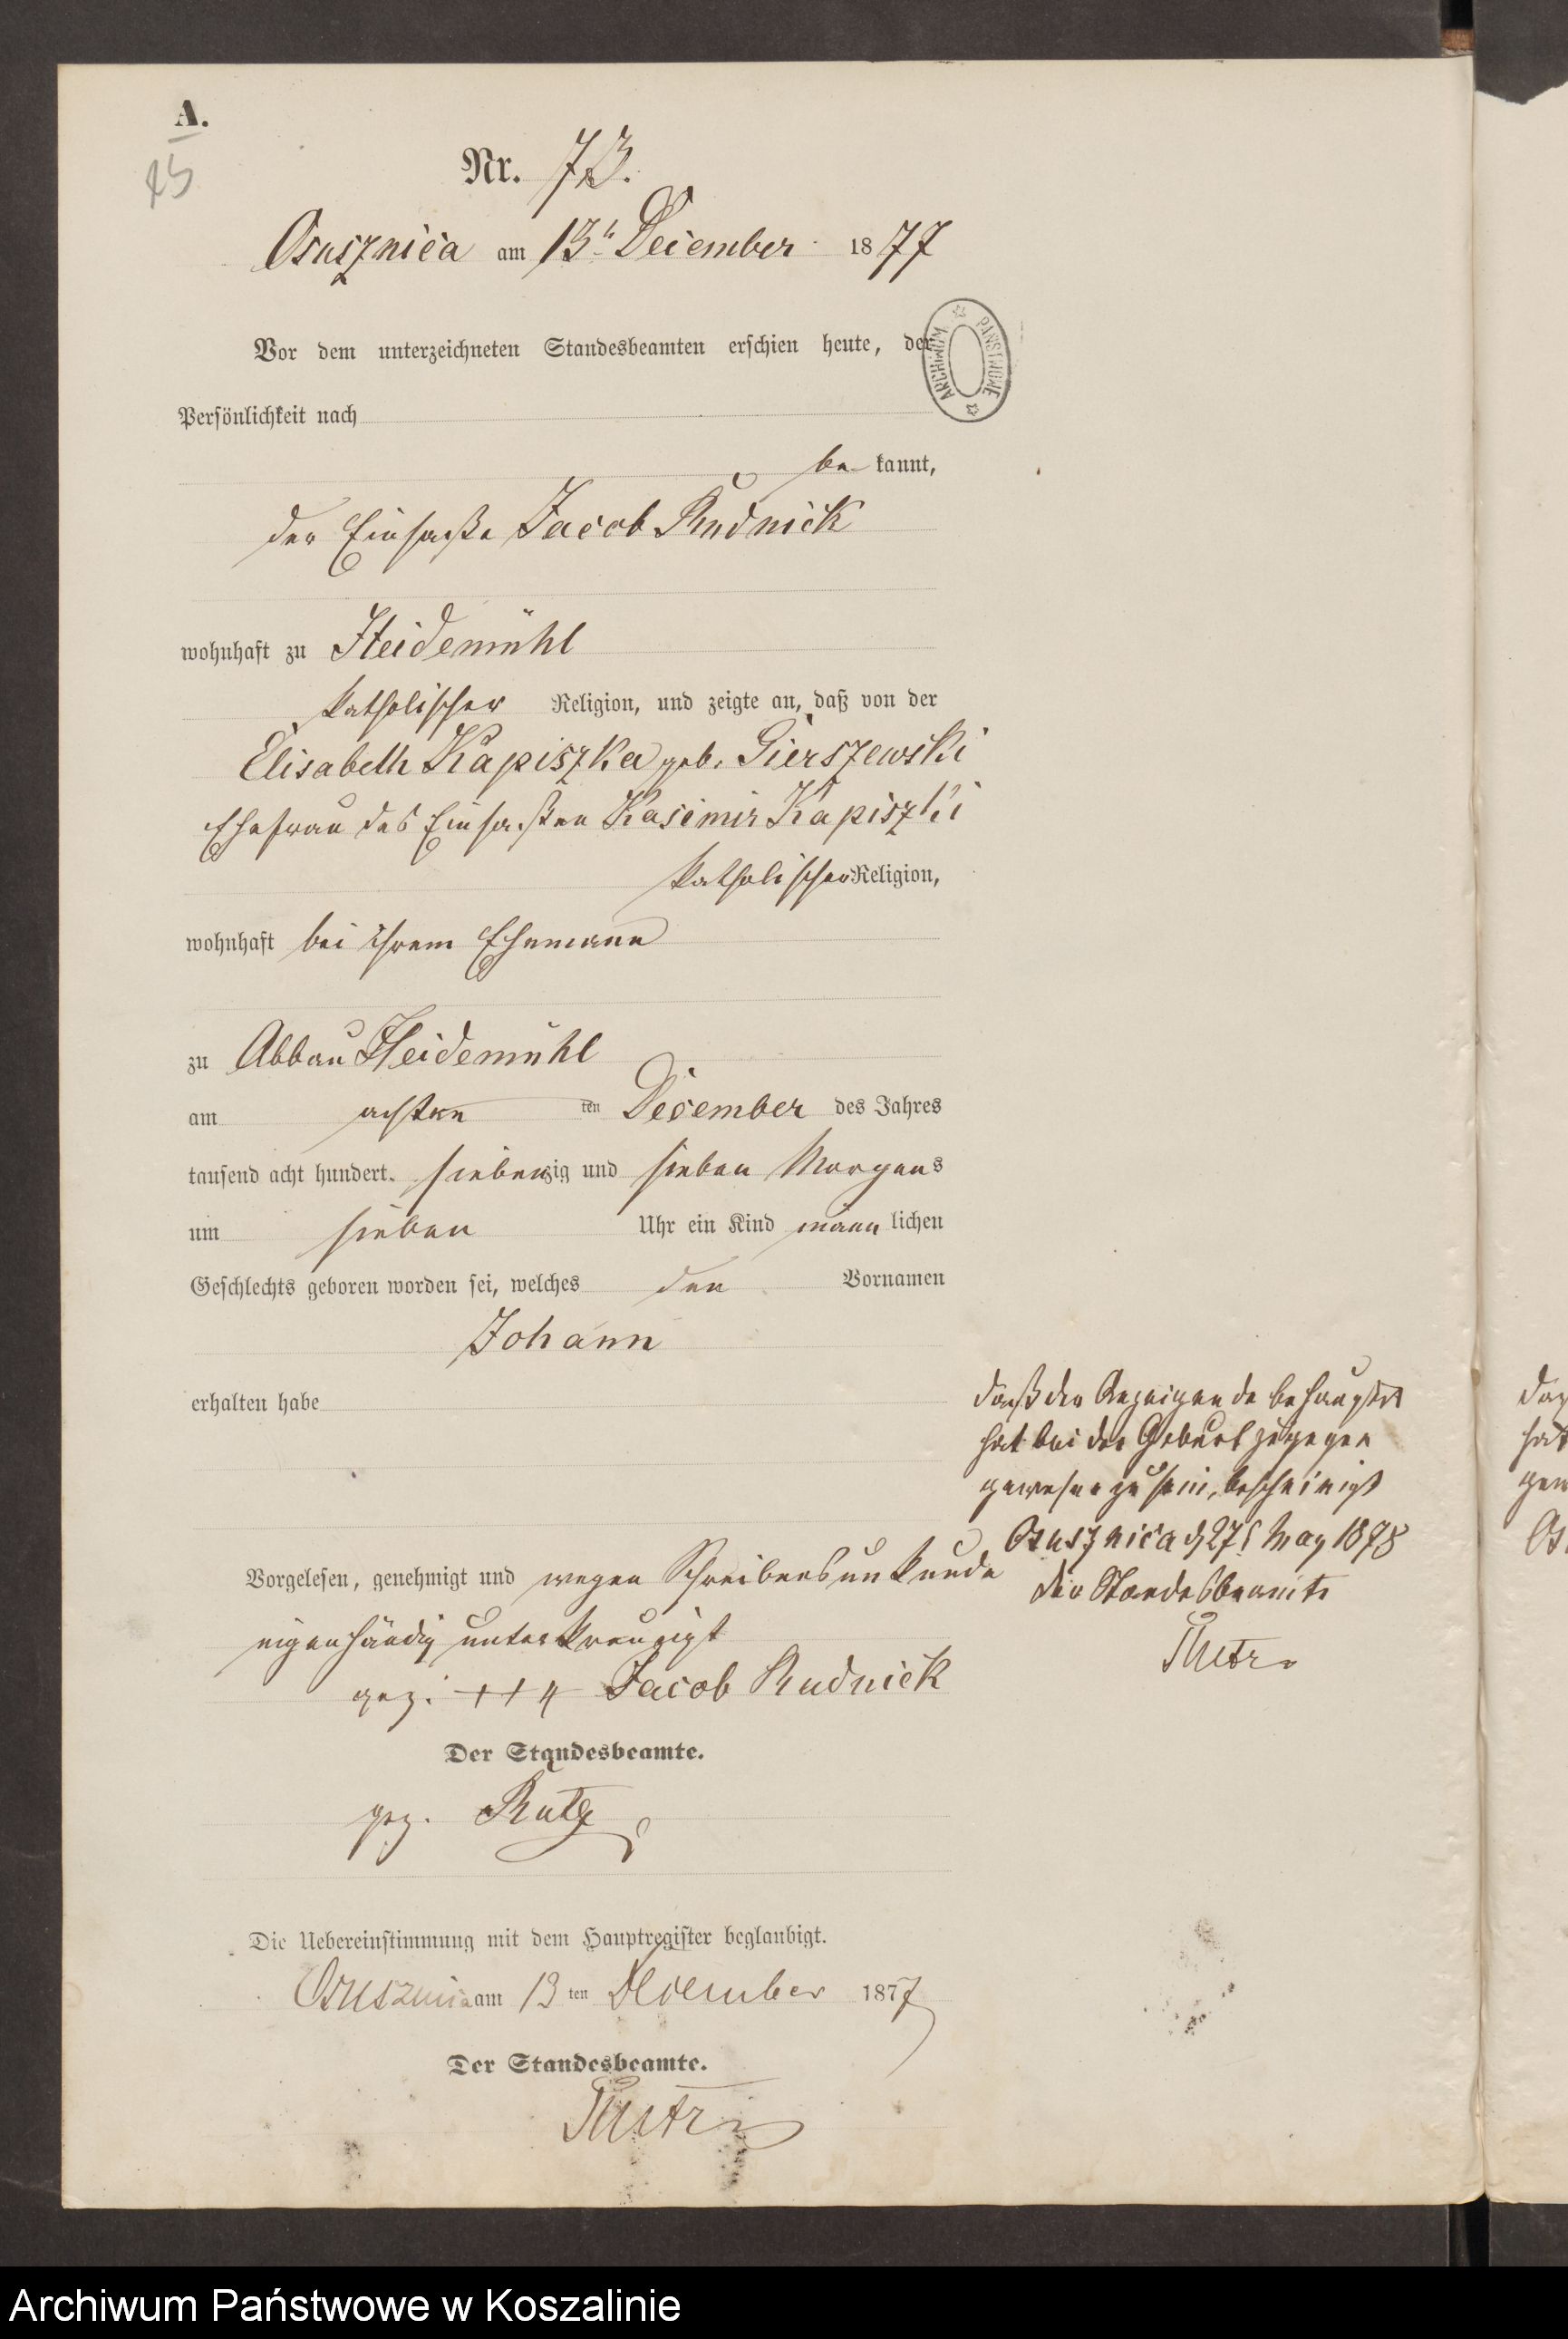 A.
Nr. 73.
Osusznica am 13ten December 1877
Vor dem unterzeichneten Standesbeamten erschien heute, der
ARCHIWUM PAŃSTWOWE
Persönlichkeit nach
be kannt,
der Einsaße Jacob Rudnick
wohnhaft zu Heidemühl
katholischer Religion, und zeigte an, daß von der
Elisabeth Kapiszka geb. Gierszewski
Ehefrau des Einsaßen Kasimir Kapiszki
katholischer Religion,
wohnhaft bei ihrem Ehemann
zu Abbau Heidemühl
am achten ten December des Jahres
tausend acht hundert siebenzig und sieben Morgens
um sieben Uhr ein Kind männlichen
Geschlechts geboren worden sei, welches den Vornamen
Johann
erhalten habe
daß der Anzeigende behauptet
hat bei der Geburt zugegen
gewesen zu sein, bescheinigt
Osusznica d 27t May 1878
der Standesbeamte
Vorgelesen, genehmigt und wegen Schreibensunkunde
eigenhändig unterkreuzigt
gez. +++ Jacob Rudnick
Der Standesbeamte.
gez.
Die Uebereinstimmung mit dem Hauptregister beglaubigt.
Osusznica am 13 ten December 1877
Der Standesbeamte.
Archiwum Państwowe w Koszalinie